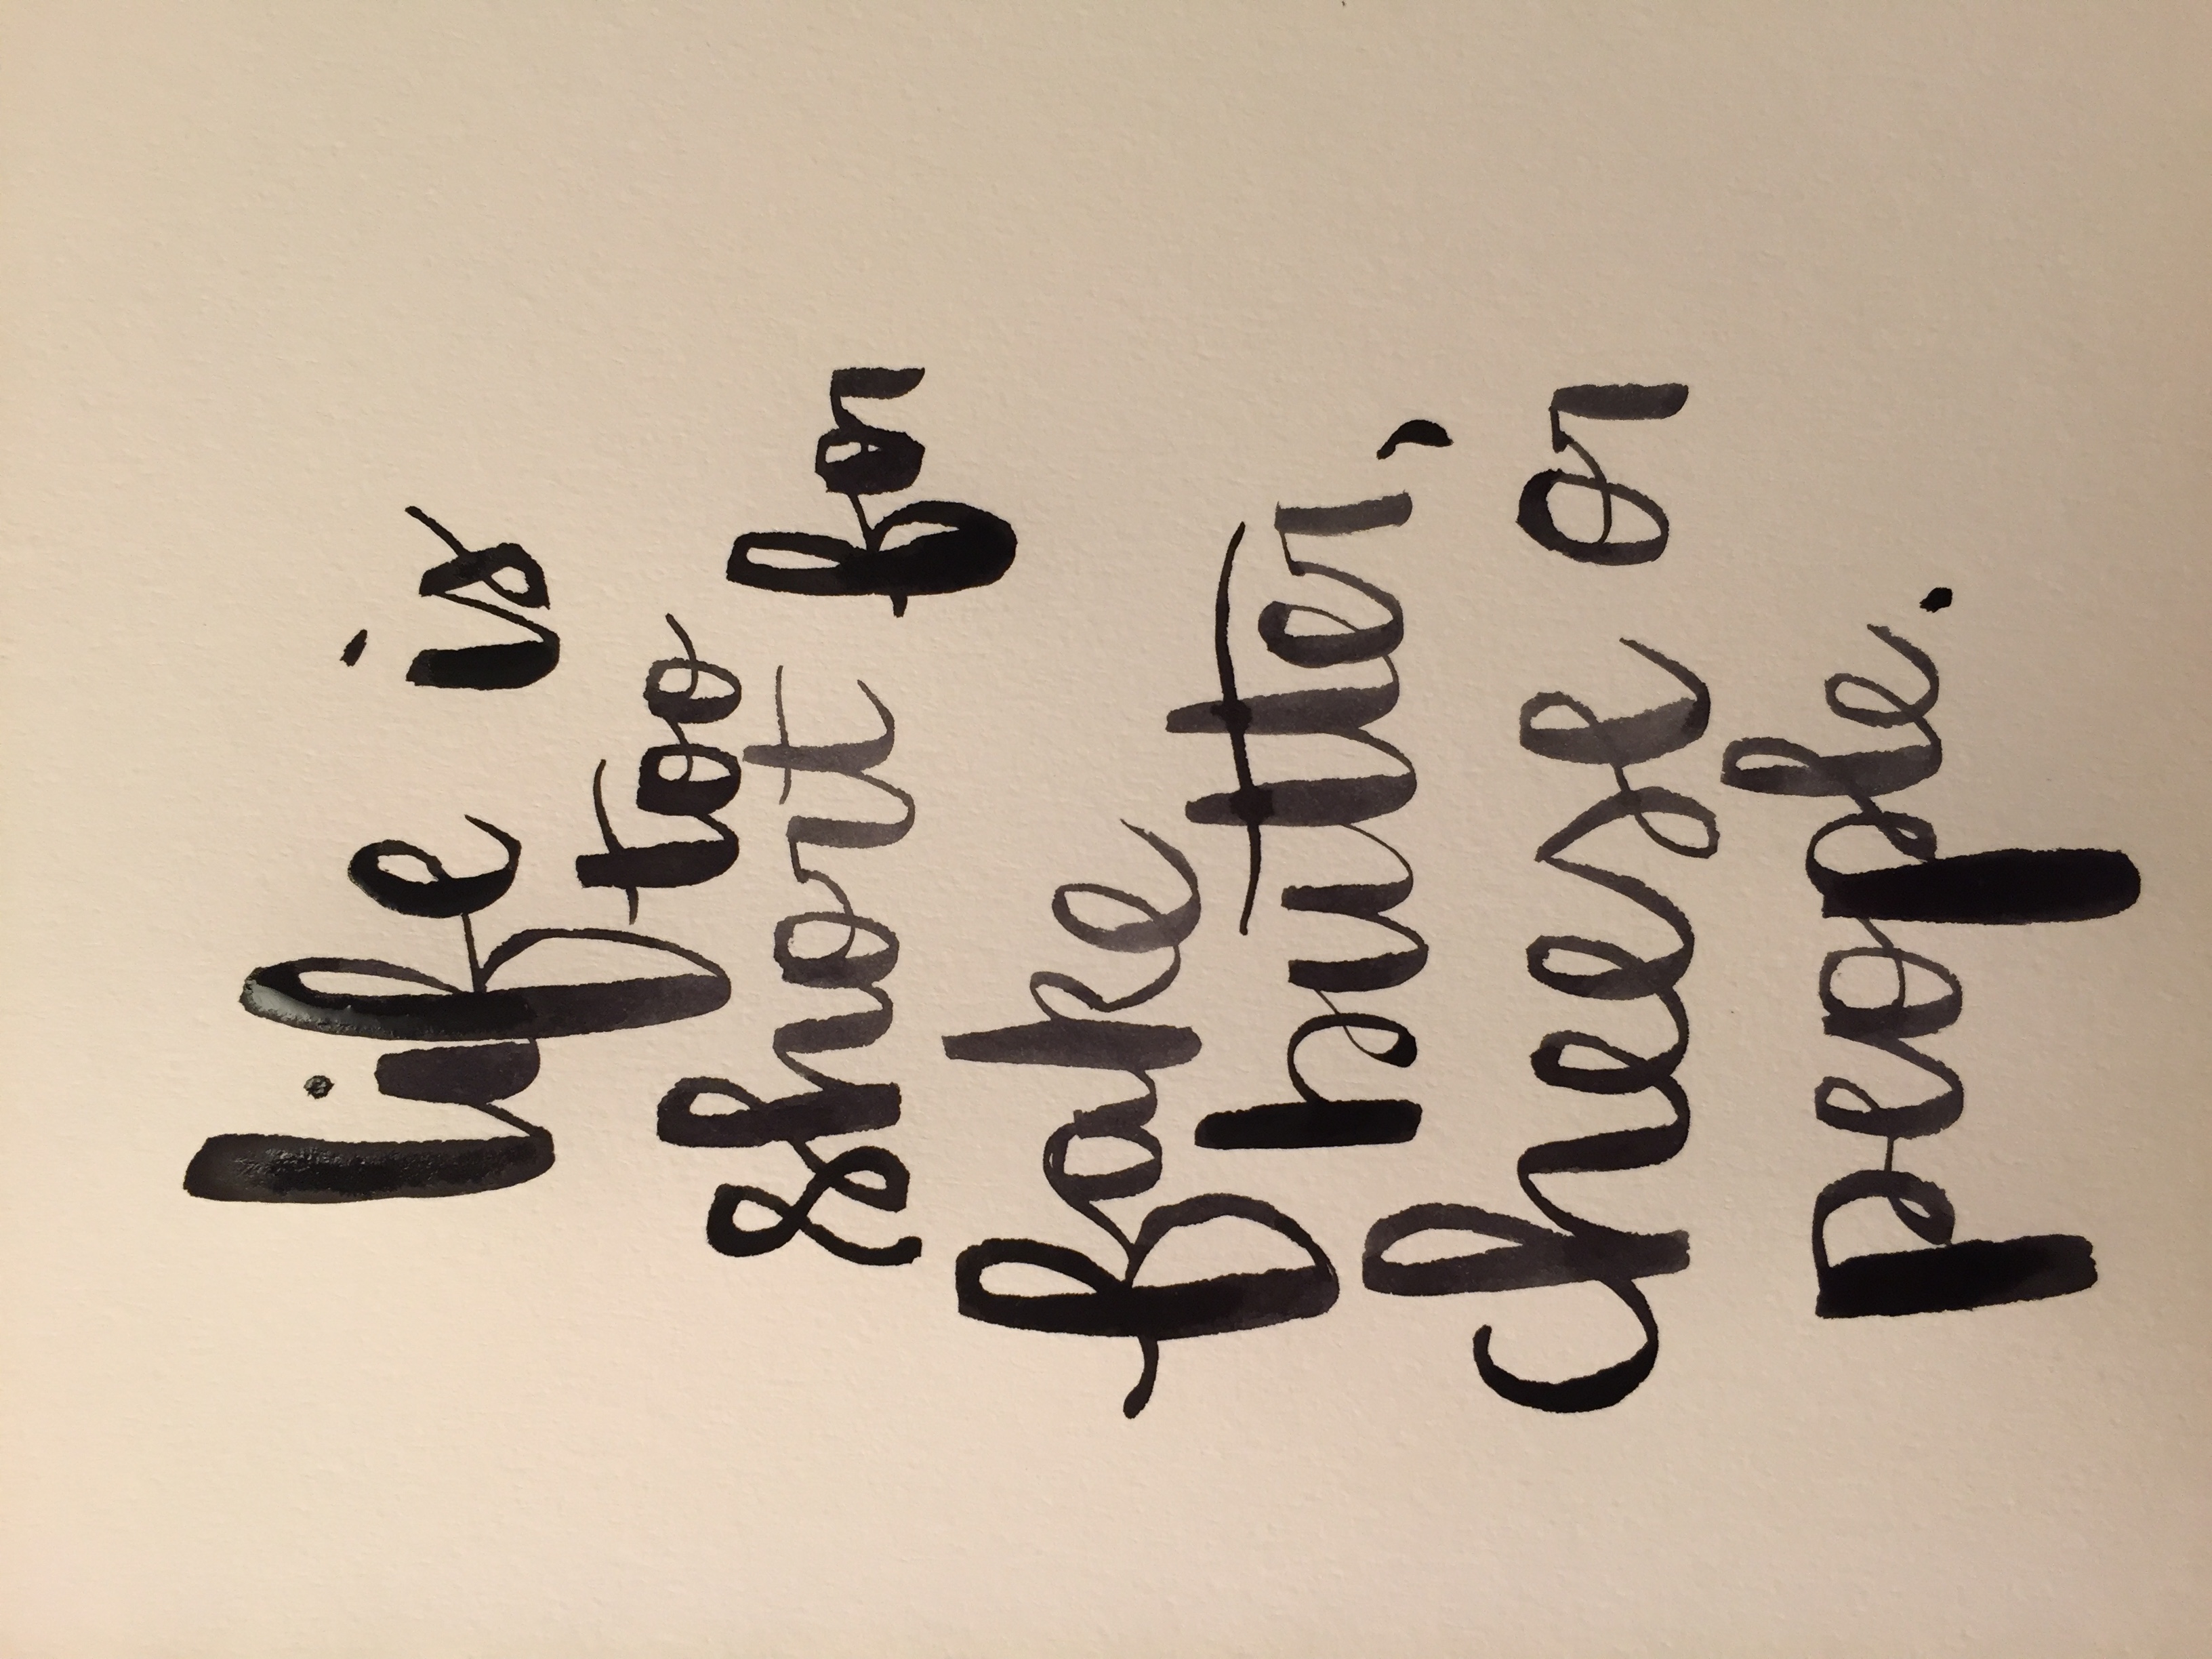 life is
too
short for
fake
butter,
cheese or
people.